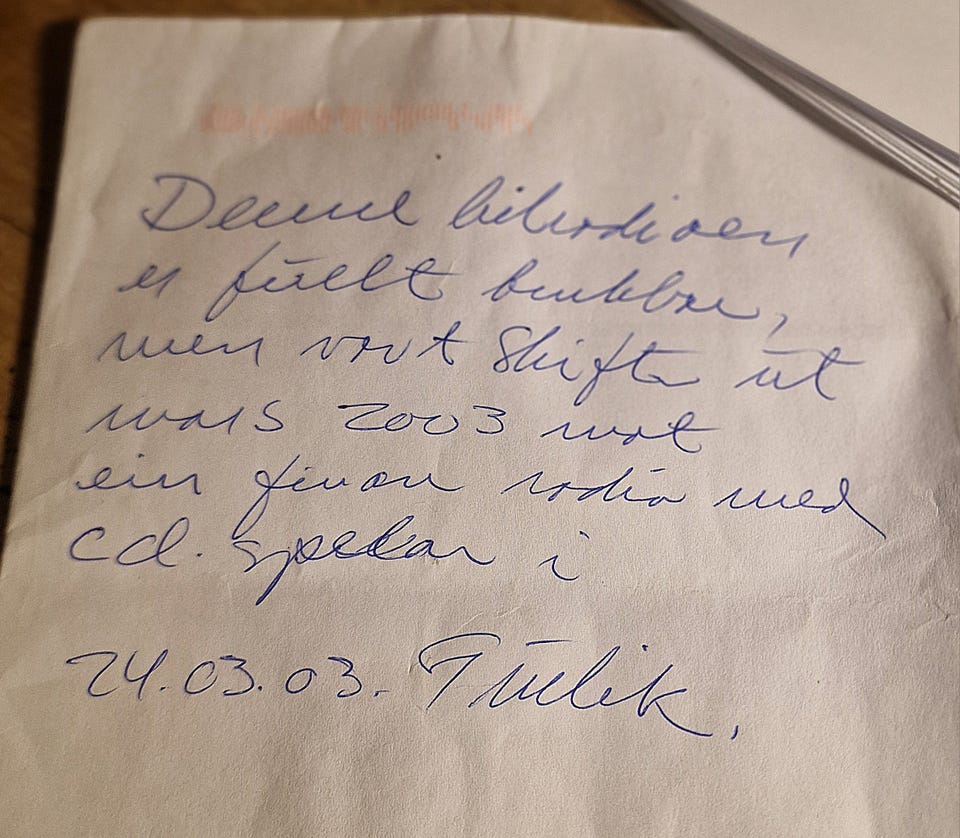 Denne bilradioen
er fullt brukbar,
men vart Skifta ut
mars 2003 mot
ein finare radio med
cd. spelar i
24.03.03.